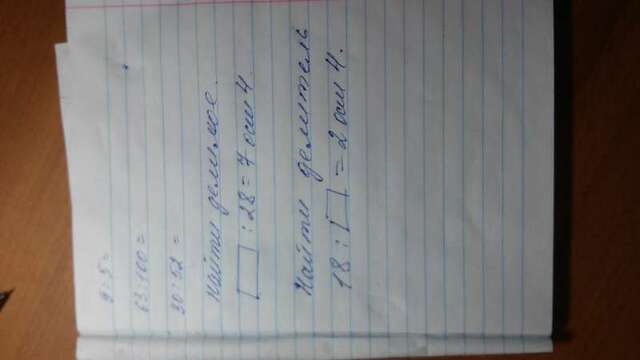 9:5=
63:100=
30:52=
Найти делимое.
□:28=7 ост 4.
Найти делитель
18:□=2 ост 4.